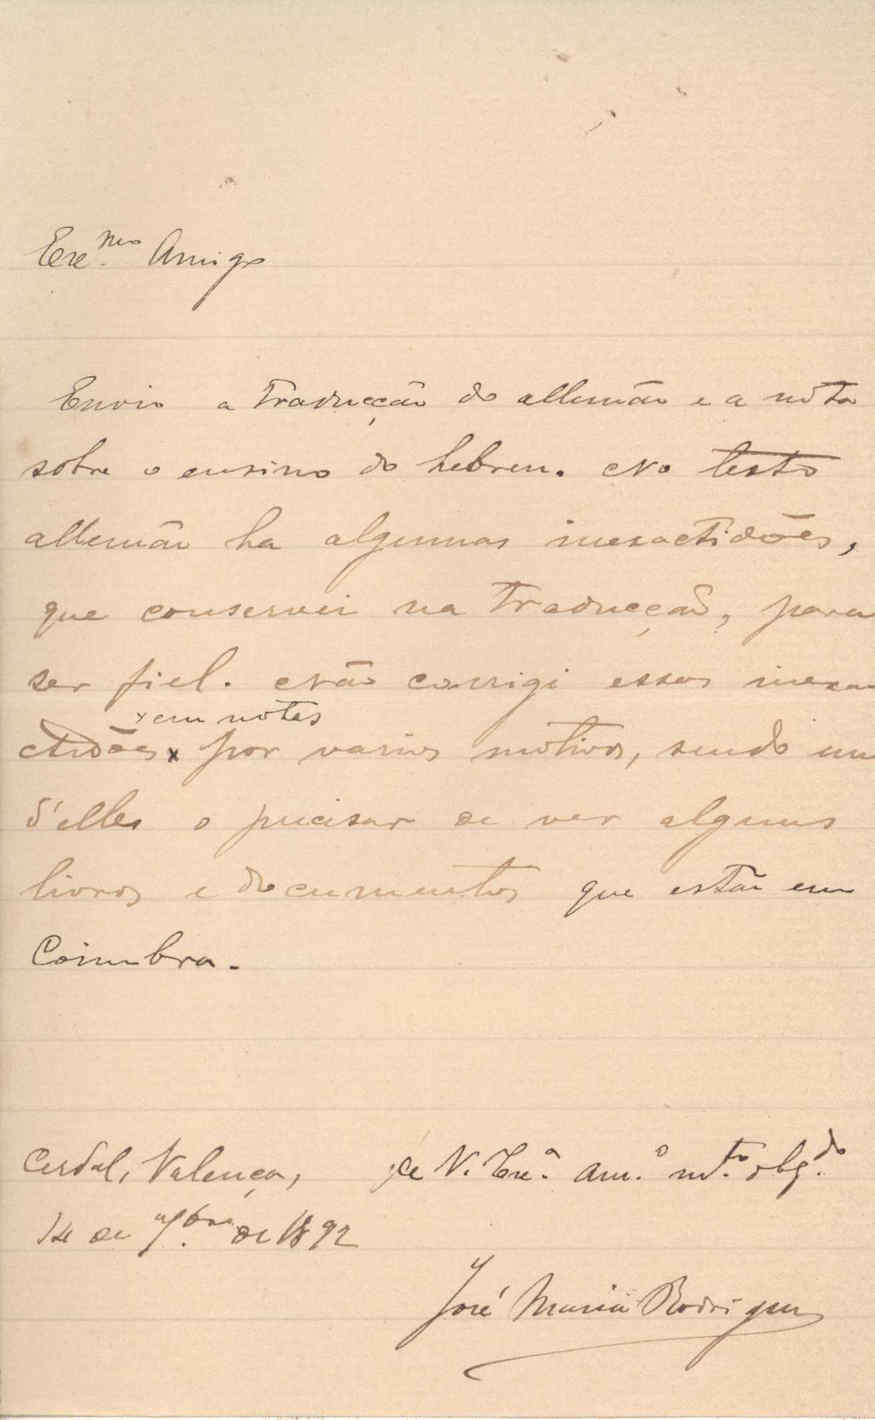 Exc.mo Amigo
Envio a traducção do allemão e a nota
sobre o ensino do hebreu. No texto
allemão ha algumas inexactidões,
que conservei na traducção, para
ser fiel. Não corrigi essas inexa-
× em notas
ctidões × por varios motivos, sendo um
d'elles o precisar de ver alguns
livros e documentos que estão em
Coimbra.
Cerdal, Valença,
14 de 7.bro de 1892
De V. Ex.ª am.º m.to obg.do
José Maria Rodrigues